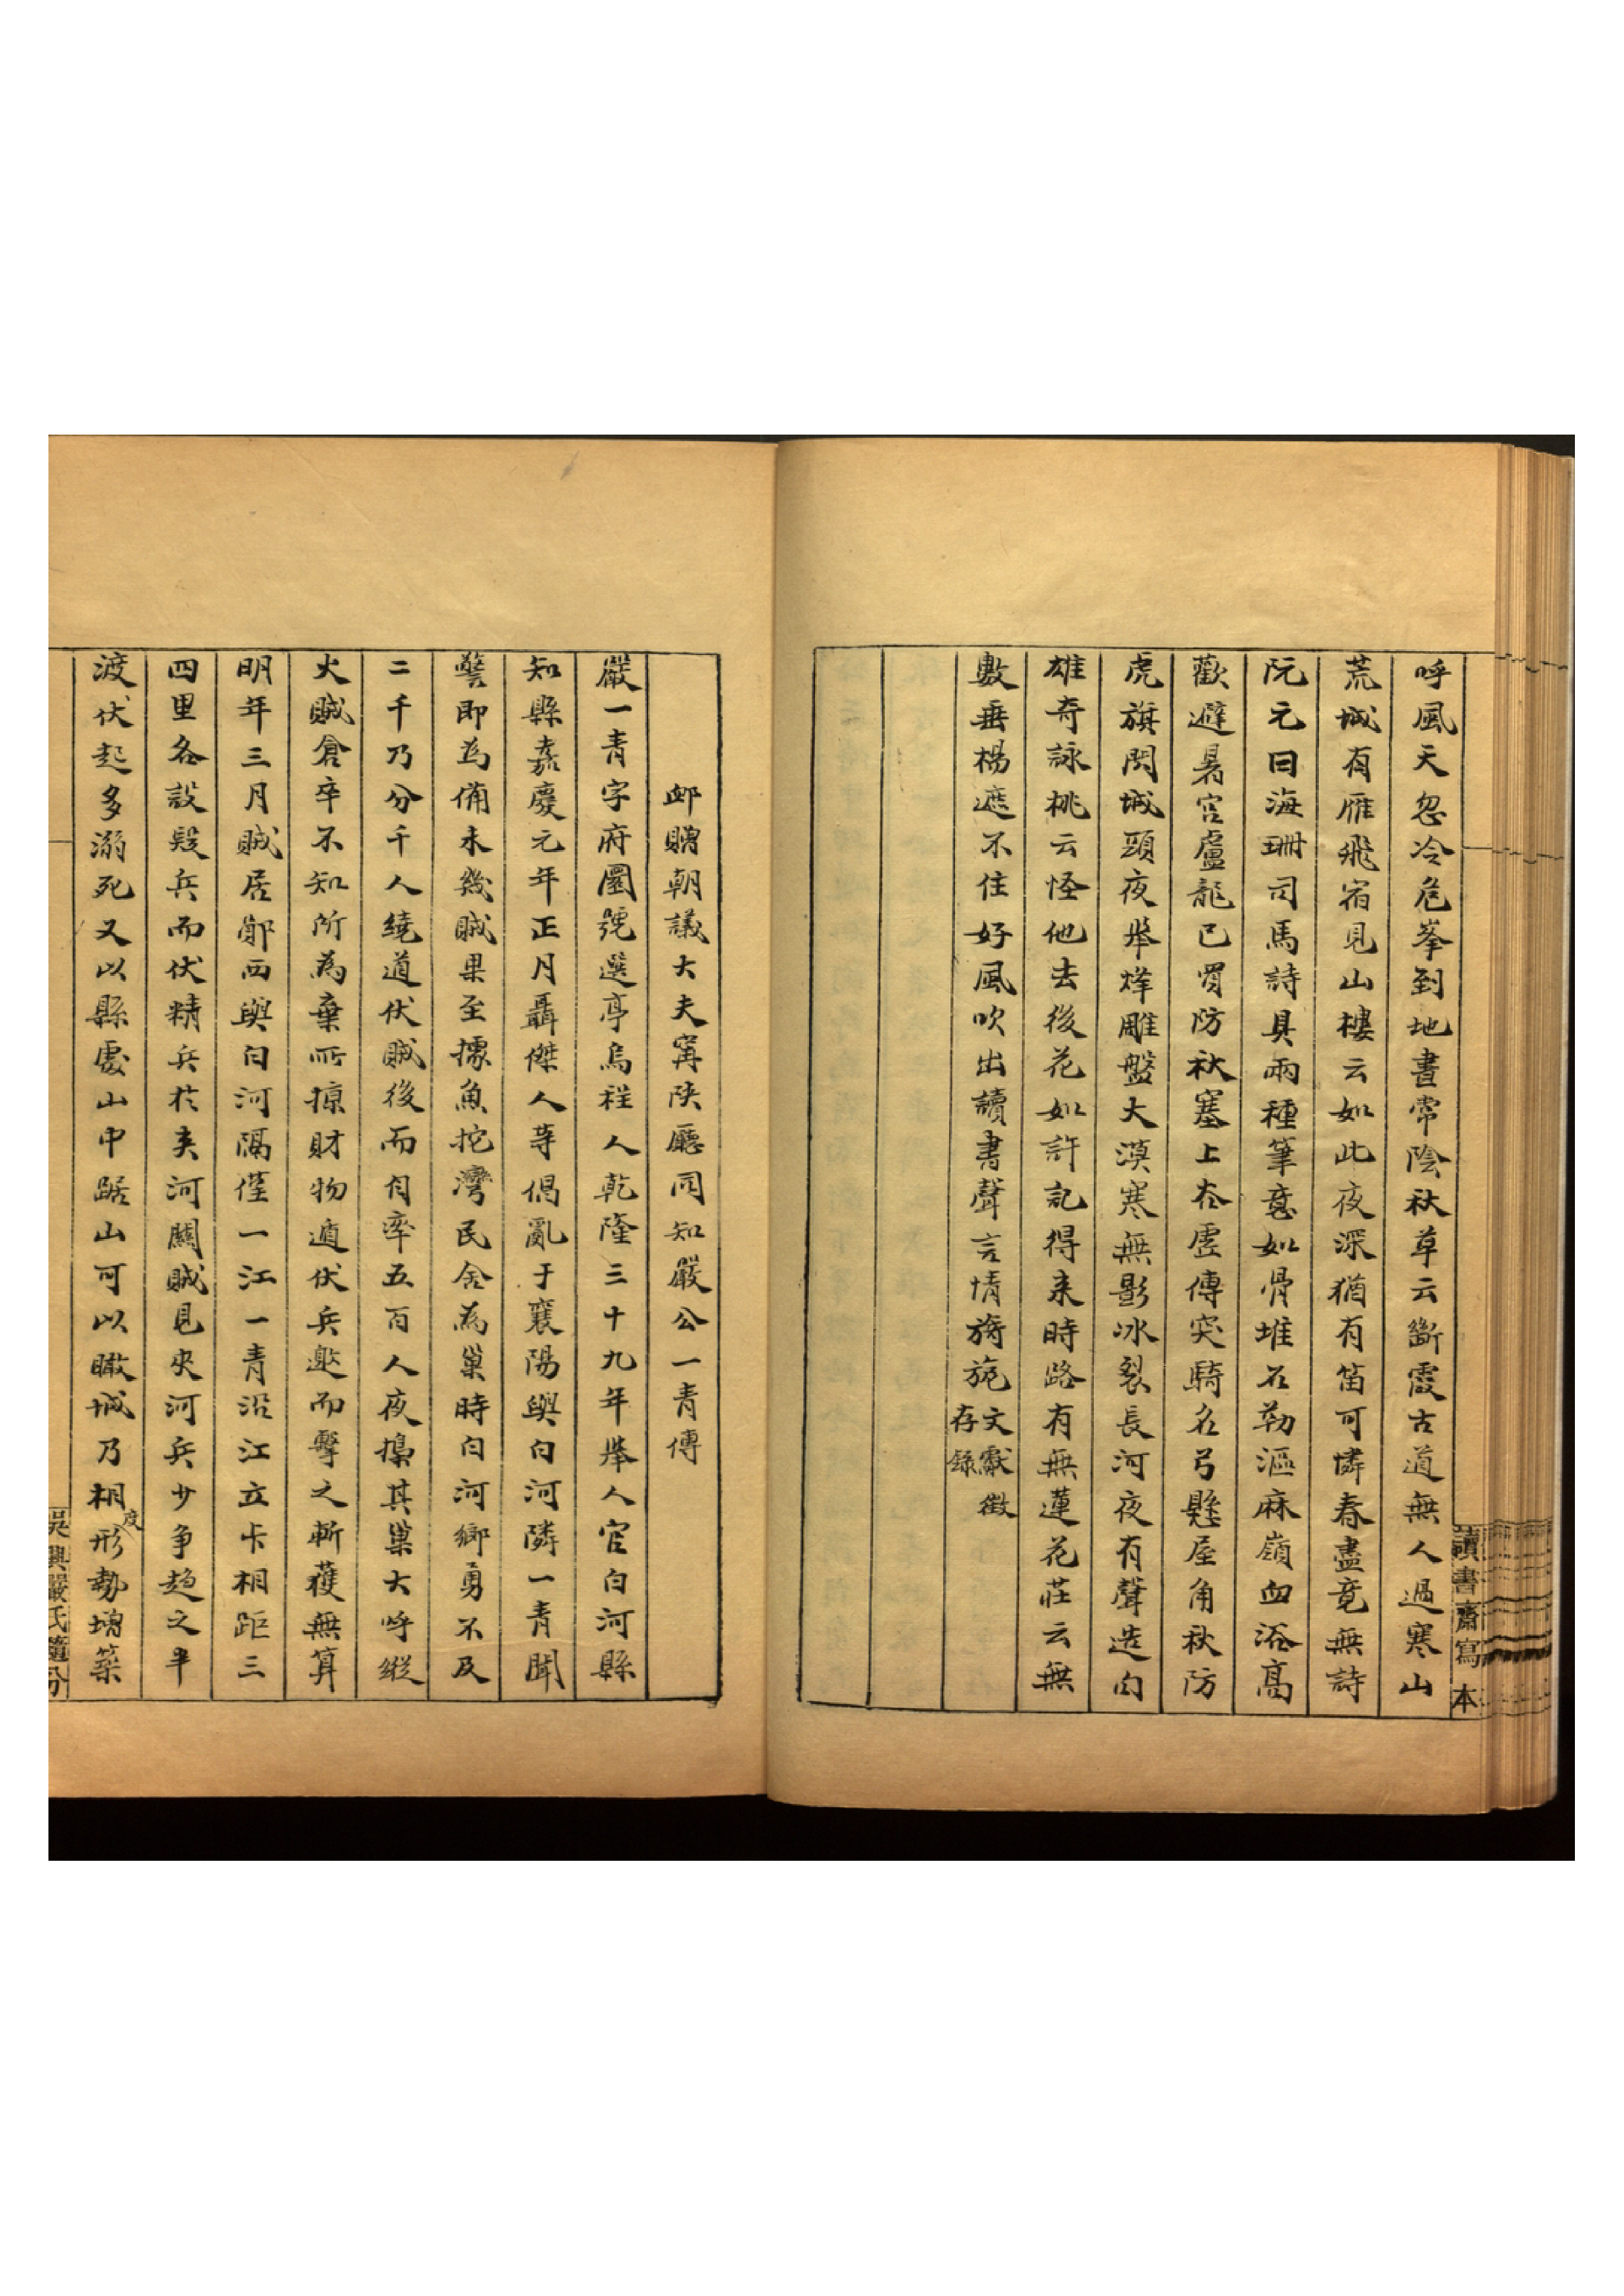 呼風天忽冷危峯到地晝常陰秋草云斷霞古道無人過寒山
荒城有雁飛宿見山樓云如此夜深猶有笛可憐春盡竟無詩
阮元曰海珊司馬詩具兩種筆意如骨堆石勒漚麻嶺血浴高
歡避暑宮盧龍已買防秋塞上谷虛傳突騎名弓懸屋角秋防
虎旗閃城頭夜舉烽雕盤大漠寒無影冰裂長河夜有聲造句
雄奇詠桃云怪他去後花如許記得來時路有無蓮花莊云無
數垂楊遮不住好風吹出讀書聲言情旖旎文獻徵
存錄
讀書齋寫本
卹贈朝議大夫寗陝廳同知嚴公一青傳
嚴一青字府園號選亭烏程人乾隆三十九年舉人官白河縣
知縣嘉慶元年正月聶傑人等倡亂于襄陽與白河隣一青聞
警即為備未幾賊果至據魚挖灣民舍為巢時白河鄉勇不及
二千乃分千人繞道伏賊後而自率五百人夜搗其巢大呼縱
火賊倉卒不知所為棄所掠財物遁伏兵邀而擊之斬獲無算
明年三月賊居鄖西與白河隔僅一江一青沿江立卡相距三
四里各設疑兵而伏精兵於夾河關賊見夾河兵少爭趨之半
渡伏起多溺死又以縣處山中踞山可以瞰城乃相度形勢增築
吳興嚴氏隨分